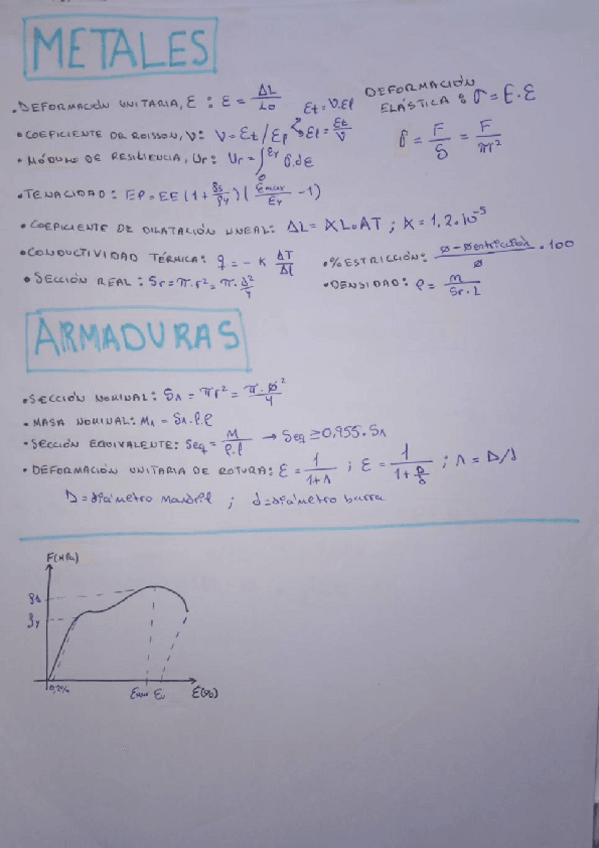 METALES
• DEFORMACIÓN UNITARIA, ε : ε = ΔL / L0
εt = ν.εl
DEFORMACIÓN ELÁSTICA : σ = E · ε
• COEFICIENTE DE POISSON, ν: ν = εt / εl → εl = εt / ν
σ = F / S = F / πr²
• MÓDULO DE RESILIENCIA, Ur: Ur = ∫₀^εy σ.dε
• TENACIDAD: EP = EE (1 + fs / fy) (εmax / εy - 1)
• COEFICIENTE DE DILATACIÓN LINEAL: ΔL = α L0 ΔT ; α = 1,2 · 10⁻⁵
• CONDUCTIVIDAD TÉRMICA: q = - K ΔT / Δl
• % ESTRICCIÓN: ø - øestricción / ø · 100
• SECCIÓN REAL: Sr = π.r² = π.d² / 4
• DENSIDAD: ρ = m / Sr · L
ARMADURAS
• SECCIÓN NOMINAL: Sn = πr² = π · ø² / 4
• MASA NOMINAL: Mn = Sn.l.ρ
• SECCIÓN EQUIVALENTE: Seq = M / ρ.l → Seq ≥ 0,955 · Sn
• DEFORMACIÓN UNITARIA DE ROTURA: ε = 1 / 1+n ; ε = 1 / 1 + D/d ; n = D/d
D = diámetro mandril ; d = diámetro barra
F(MPa)
fs
fy
0,2%
εmax εu ε(%)